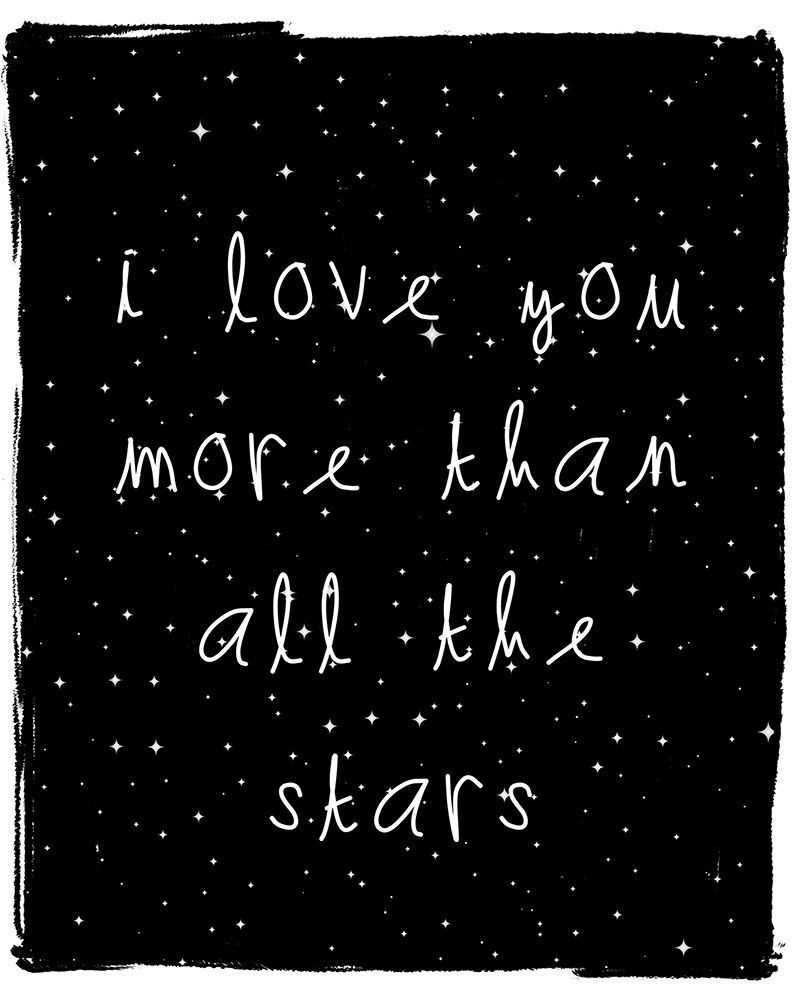 i love you
more than
all the
stars